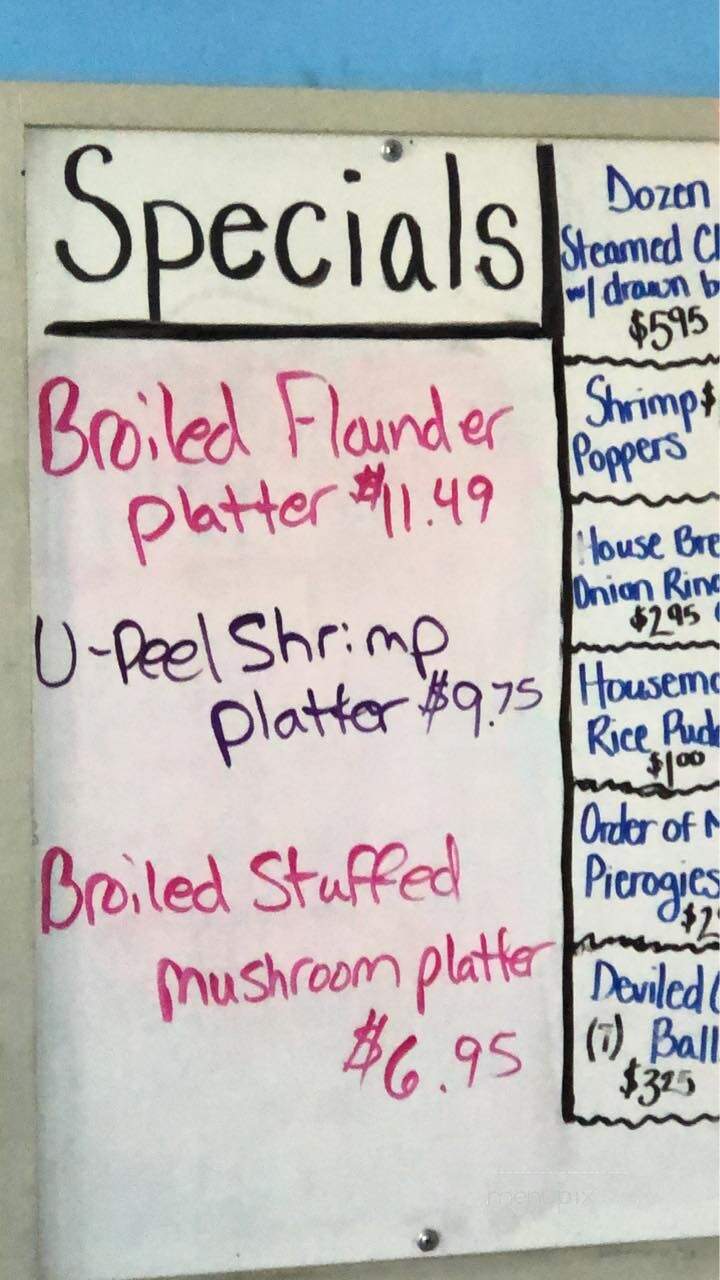 Specials
Broiled Flounder
platter $11.49
U-Peel Shrimp
platter $9.75
Broiled Stuffed
mushroom platter
$6.95
Dozen
Steamed
w/ drawn
$5.95
Shrimp $
Poppers
House
Onion
$2.95
Rice
$1.00
Order of
Pierogies
Deviled
(7)
$3.25
menupix